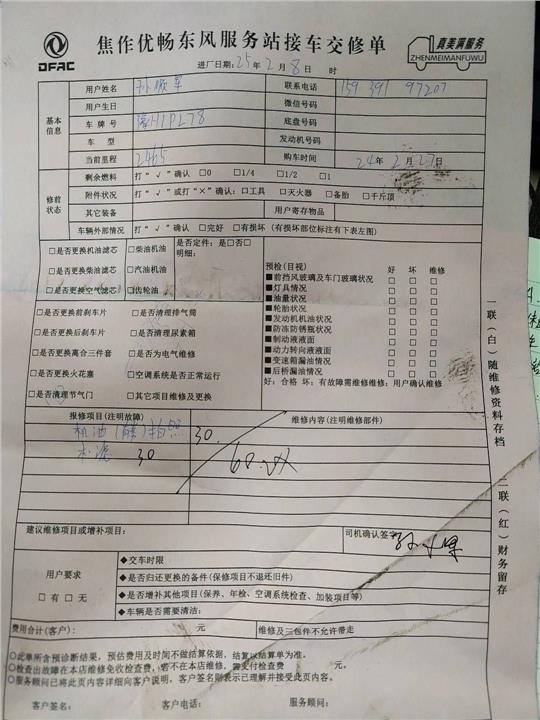 DFAC
焦作优畅东风服务站接车交修单
真美满服务
ZHENMEIMANFUWU
进厂日期：25年 2月 8日 时
基本信息
用户姓名 孙顺军 联系电话 159 391 97207
用户生日 微信号码
车牌号 豫H1PL78 底盘号码
车型 发动机号码
当前里程 2465 购车时间 24年 2月 27日
修前状态
剩余燃料 打“√”确认 □0 □1/4 □1/2 □1
附件状况 打“√”或打“×”确认：□工具 □灭火器 □备胎 □千斤顶
其它装备 用户寄存物品
车辆外部情况 打“√”确认 □完好 □有损坏（有损坏部位标注有下表左图）
□是否更换机油滤芯 □柴油机油
□是否更换柴油滤芯 □汽油机油
□是否更换空气滤芯 □齿轮油
是否定件：是□否□
明细：
□是否更换前刹车片 □是否清理排气筒
□是否更换后刹车片 □是否清理尿素箱
□是否更换离合三件套 □是否为电气维修
□是否更换火花塞 □空调系统是否正常运行
□是否清理节气门 □其它项目维修及更换
预检(目视) 好 坏 维修
■前挡风玻璃及车门玻璃状况 □ □ □
■灯具情况 □ □ □
■油量状况 □ □ □
■轮胎状况 □ □ □
■发动机机油状况 □ □ □
■防冻防锈瓶状况 □ □ □
■制动液液面 □ □ □
■动力转向液液面 □ □ □
■变速箱漏油情况 □ □ □
■后桥漏油情况 □ □ □
好：合格 坏：有故障需维修维修：用户确认维修
报修项目(注明故障) 维修内容(注明维修部件)
机油 30.
30
建议维修项目或增补项目：
司机确认签字
用户要求
□有 □无
◆交车时限
◆是否归还更换的备件(保修项目不退还旧件)
◆是否增补其他项目(保养、年检、空调系统检查、加装项目等)
◆车辆是否需要清洁：
费用合计(客户)： 元 维修及三包件不允许带走
○此单所含预诊断结果，预估费用及时间不做结算依据，结算以结算单为准。
○检查出故障在本店维修免收检查费，若不在本店维修，需支付检查费 元。
○服务顾问已将此页内容详细向客户说明，客户签名则表示已理解并接受此页内容。
客户签名： 客户电话： 服务顾问：
一联（白）随维修资料存档
二联（红）财务留存